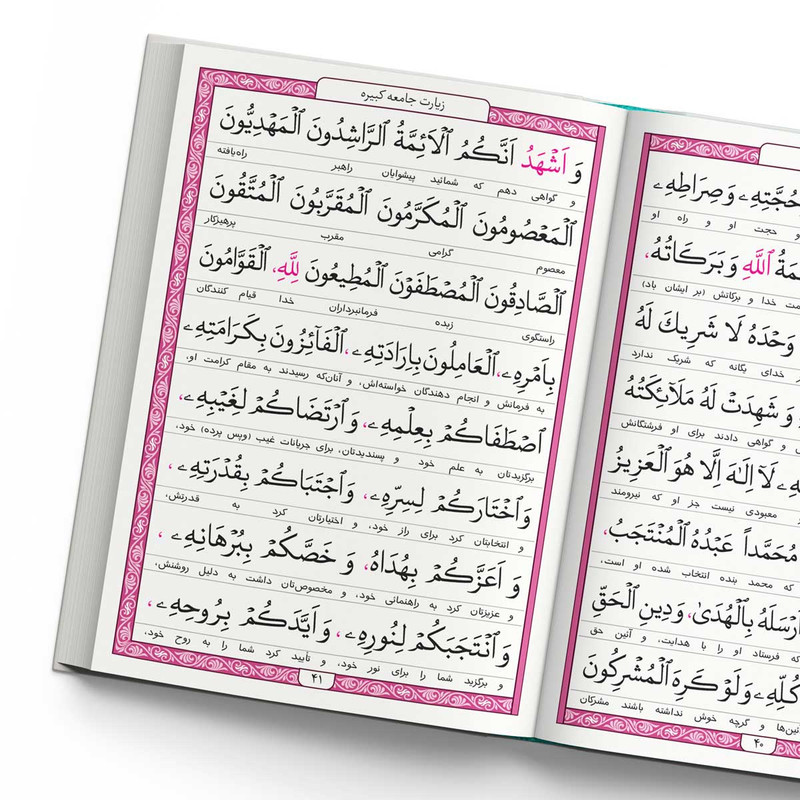 حُجَّتِهِ وَ صِرَاطِهِ
و حجت او و راه او
اَللّٰهِ وَ بَرَكَاتُهُ،
خدا و برکاتش (بر ایشان باد)
وَحْدَهُ لَا شَرِيكَ لَهُ
خدای یگانه که شریک ندارد
وَ شَهِدَتْ لَهُ مَلَآئِكَتُهُ
و گواهی دادند برای او فرشتگانش
لَآ اِلٰهَ اِلَّا هُوَ الْعَزِيزُ
معبودی نیست جز او که نیرومند
مُحَمَّداً عَبْدُهُ الْمُنْتَجَبُ،
که محمد بنده انتخاب شده او است،
اَرْسَلَهُ بِالْهُدَىٰ، وَ دِينِ الْحَقِّ
که فرستاد او را با هدایت، و آئین حق
كُلِّهِ وَ لَوْ كَرِهَ الْمُشْرِكُونَ
و گرچه خوش نداشته باشند مشرکان
۴۰
زیارت جامعه کبیره
وَ اَشْهَدُ اَنَّكُمُ الْاَئِمَّةُ الرَّاشِدُونَ الْمَهْدِيُّونَ
و گواهی دهم که شمائید پیشوایان راهبر راه‌یافته
اَلْمَعْصُومُونَ الْمُكَرَّمُونَ الْمُقَرَّبُونَ الْمُتَّقُونَ
معصوم گرامی مقرب پرهیزکار
اَلصَّادِقُونَ الْمُصْطَفَوْنَ الْمُطِيعُونَ لِلّٰهِ، الْقَوَّامُونَ
راستگوی زبده فرمانبرداران خدا قیام کنندگان
بِاَمْرِهِ، اَلْعَامِلُونَ بِاِرَادَتِهِ، اَلْفَآئِزُونَ بِكَرَامَتِهِ
به فرمانش و انجام دهندگان خواسته‌اش، و آنان‌که رسیدند به مقام کرامت او.
اِصْطَفَاكُمْ بِعِلْمِهِ، وَ ارْتَضَاكُمْ لِغَيْبِهِ،
برگزیدتان به علم خود و پسندیدتان، برای جریانات غیب (وپس پرده) خود،
وَ اخْتَارَكُمْ لِسِرِّهِ، وَ اجْتَبَاكُمْ بِقُدْرَتِهِ،
و انتخابتان کرد برای راز خود، و اختیارتان کرد به قدرتش،
وَ اَعَزَّكُمْ بِهُدَاهُ، وَ خَصَّكُمْ بِبُرْهَانِهِ،
و عزیزتان کرد به راهنمائی خود، و مخصوص‌تان داشت به دلیل روشنش،
وَ انْتَجَبَكُمْ لِنُورِهِ، وَ اَيَّدَكُمْ بِرُوحِهِ،
و برگزید شما را برای نور خود، و تأیید کرد شما را به روح خود،
۴۱